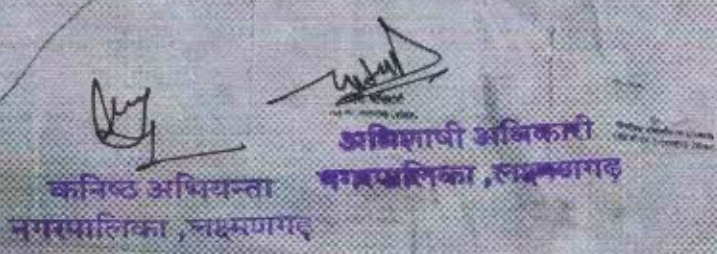 कनिष्ठ अभियन्ता
नगरपालिका ,लक्ष्मणगढ़
अधिशाषी अधिकारी
नगरपालिका ,लक्ष्मणगढ़